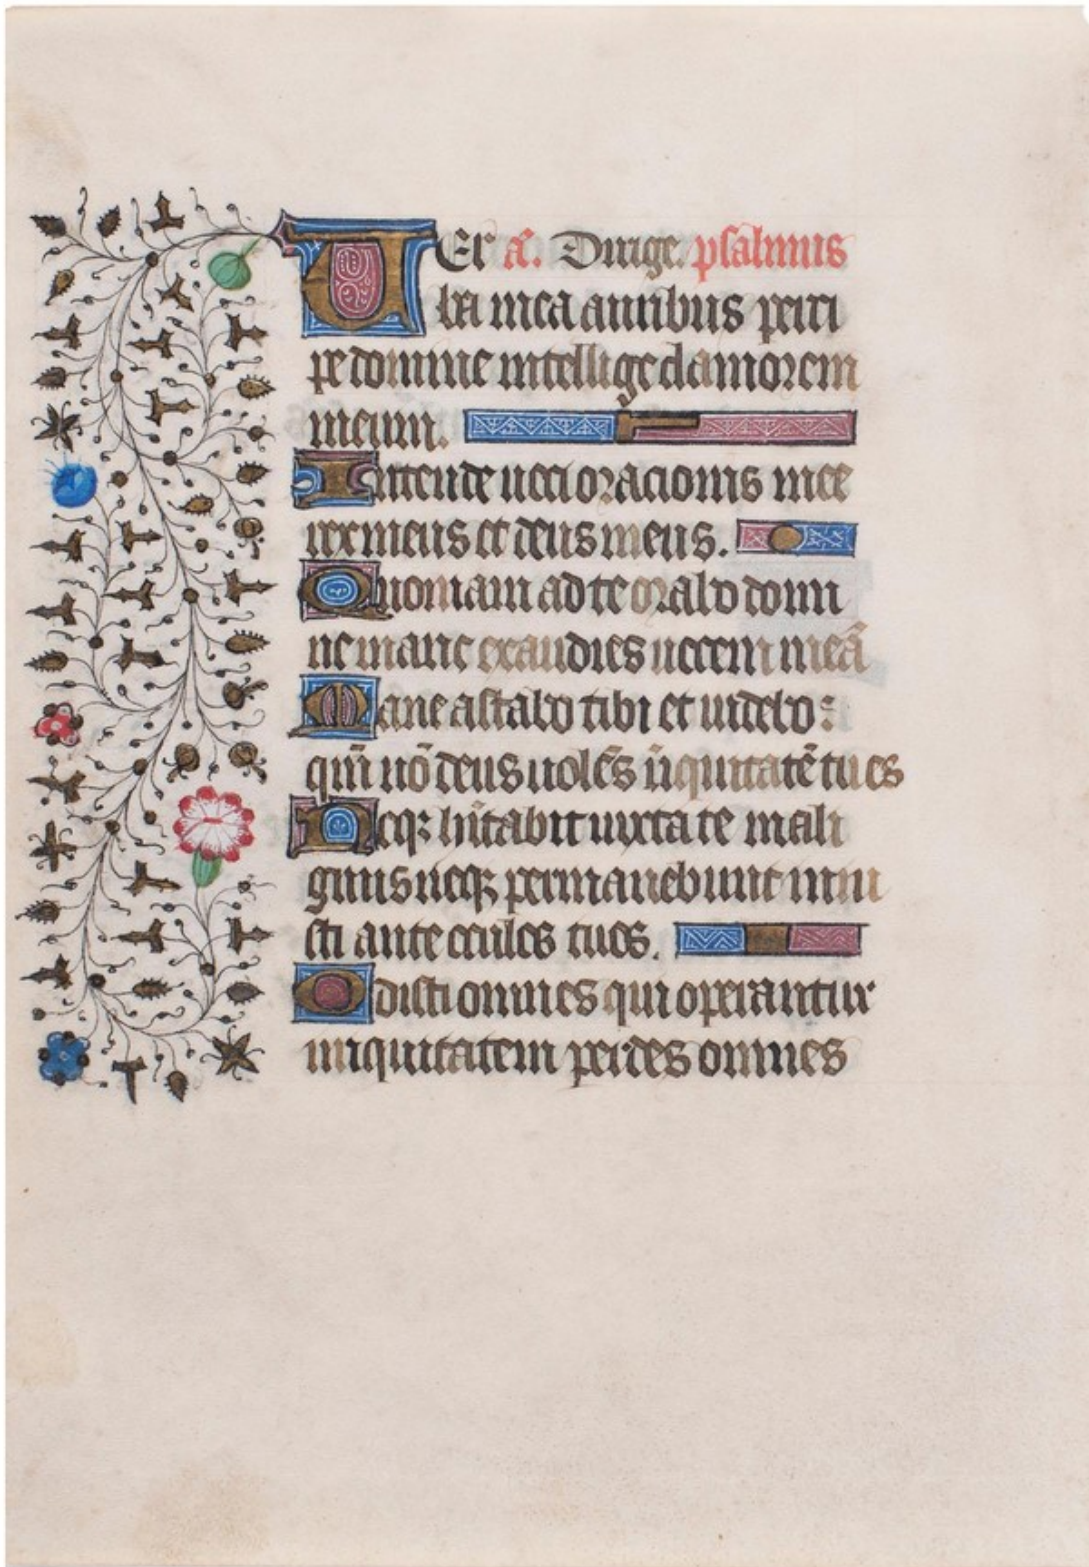 VEr a͞. Dirige. psalmus
ba mea auribus perci
pe domine intellige clamorem
meum.
Intende voci oracionis mee
rex meus et deus meus.
Quoniam ad te orabo domi
ne mane exaudies vocem meā
Mane astabo tibi et videbo:
qm̄ nō deus volēs iīquitatē tu es
Neqꝫ hītabit iuxta te mali
gnus neqꝫ permanebunt iniu
sti ante oculos tuos.
Odisti omnes qui operantur
iniquitatem perdes omnes